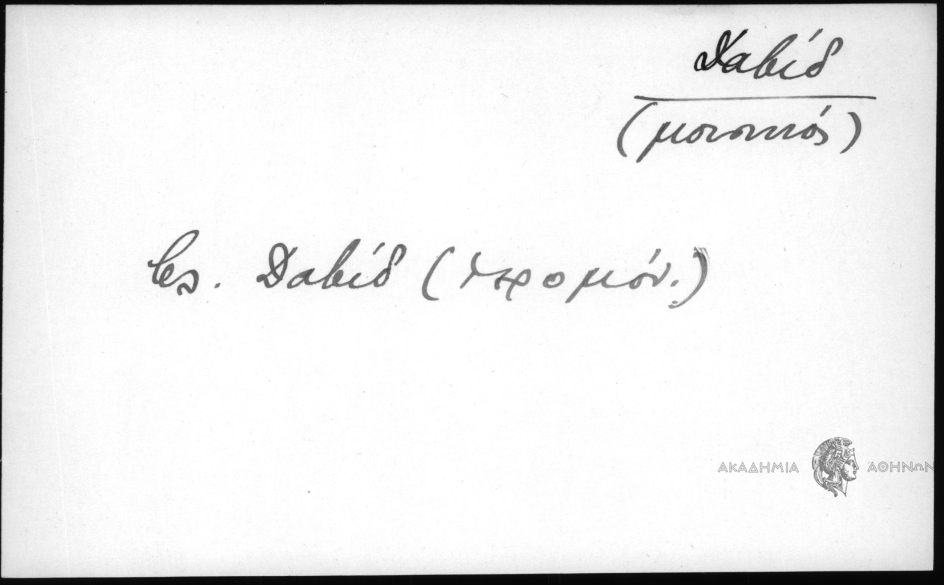 Δαβίδ
(μουσικός)
βλ. Δαβίδ (ιερομόν.)
ΑΚΑΔΗΜΙΑ ΑΘΗΝΩΝ